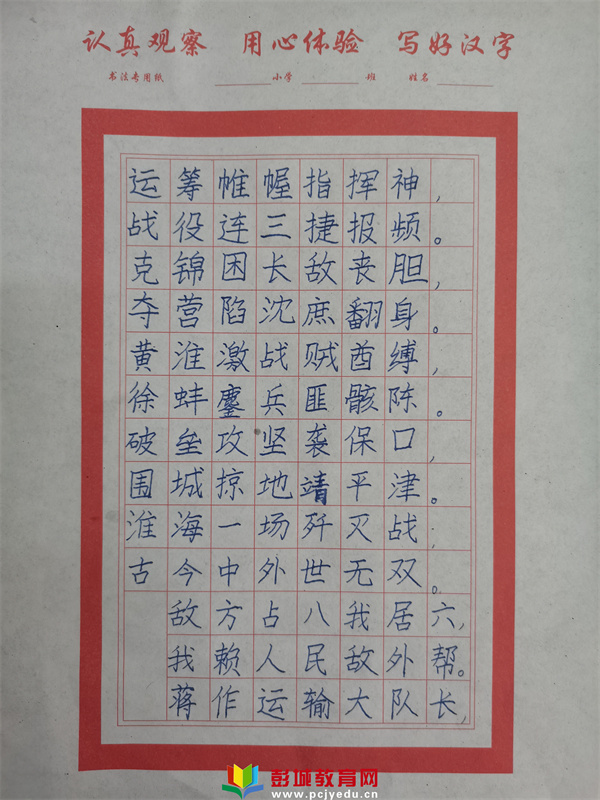 认真观察 用心体验 写好汉字
书法专用纸 小学 班 姓名
运筹帷幄指挥神,
战役连三捷报频。
克锦困长敌丧胆,
夺营陷沈庶翻身。
黄淮激战贼酋缚,
徐蚌鏖兵匪骸陈。
破垒攻坚袭保口,
围城掠地靖平津。
淮海一场歼灭战;
古今中外世无双。
敌方占八我居六,
我赖人民敌外帮。
蒋作运输大队长,
彭城教育网
www.pcjyedu.cn